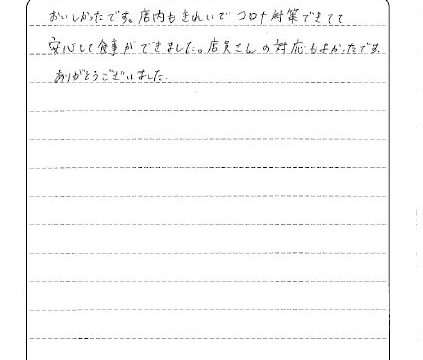 おいしかったです。店内もきれいで コロナ対策できてて
安心して食事ができました。店員さんの対応もよかったです
ありがとうございました